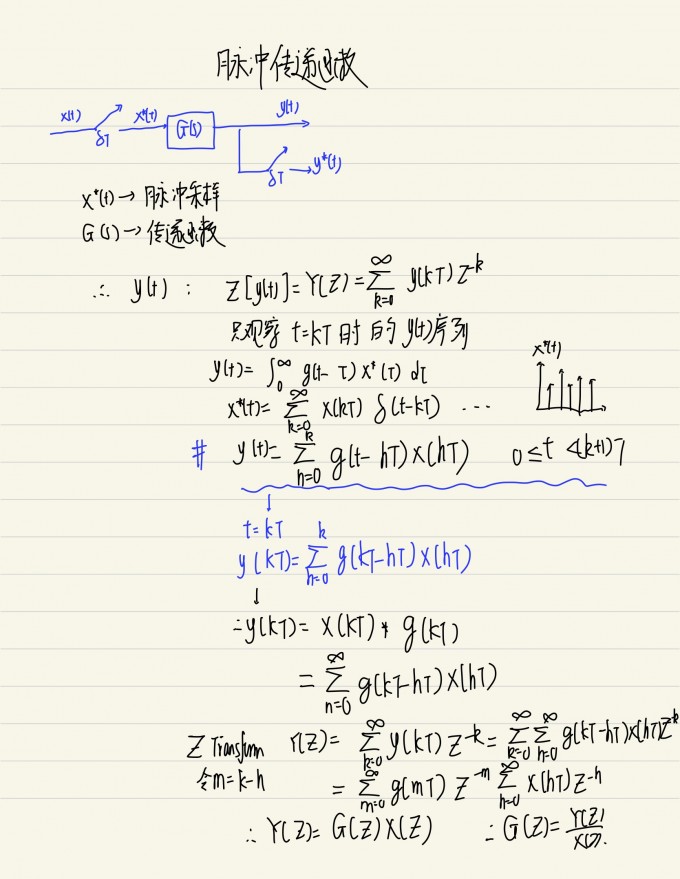 脉冲传递函数
x(t) δT x*(t) G(s) y(t)
δT → y*(t)
x*(t) → 脉冲采样
G(s) → 传递函数
∴ y(t) : Z[y(t)] = Y(Z) = ∑_{k=0}^{∞} y(kT) Z^{-k}
只观察 t=kT 时 的 y(t)序列
y(t) = ∫_0^∞ g(t-τ) x*(τ) dτ
x*(t)
x*(t) = ∑_{k=0}^{∞} x(kT) δ(t-kT) ...
# y(t) = ∑_{h=0}^{k} g(t-hT) x(hT) 0≤t<(k+1)T
↓
t=kT
y(kT) = ∑_{h=0}^{k} g(kT-hT) x(hT)
↓
∴ y(kT) = x(kT) * g(kT)
= ∑_{n=0}^{∞} g(kT-hT) x(hT)
Z Transform Y(Z) = ∑_{k=0}^{∞} y(kT) Z^{-k} = ∑_{k=0}^{∞} ∑_{h=0}^{∞} g(kT-hT) x(hT) Z^{-k}
令m=k-h = ∑_{m=0}^{∞} g(mT) Z^{-m} ∑_{h=0}^{∞} x(hT) Z^{-h}
∴ Y(Z) = G(Z) X(Z) ∴ G(Z) = Y(Z)/X(Z).